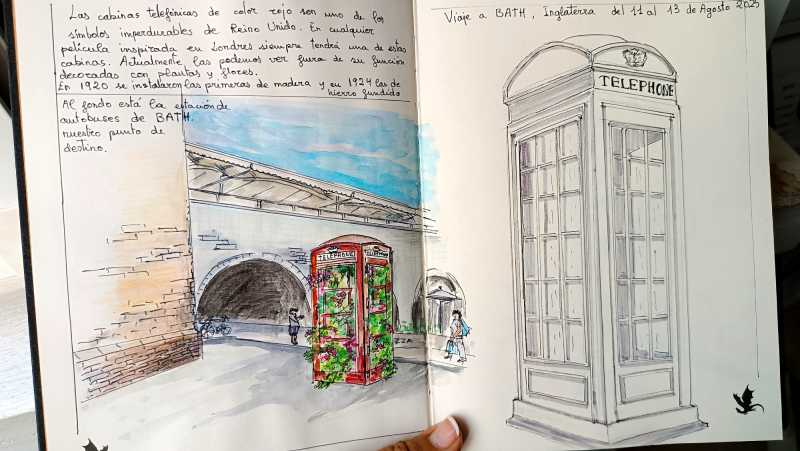 Las cabinas telefónicas de color rojo son uno de los
símbolos imperdurables de Reino Unido. En cualquier
película inspirada en Londres siempre tendrá una de estas
cabinas. Actualmente, las podemos ver fuera de su función
decoradas con plantas y flores.
En 1920 se instalaron las primeras de madera y en 1924 las de
hierro fundido
Al fondo está la estación de
autobuses de BATH.
nuestro punto de
destino.
TELEPHONE
Viaje a BATH, Inglaterra del 11 al 13 de Agosto 2023
TELEPHONE